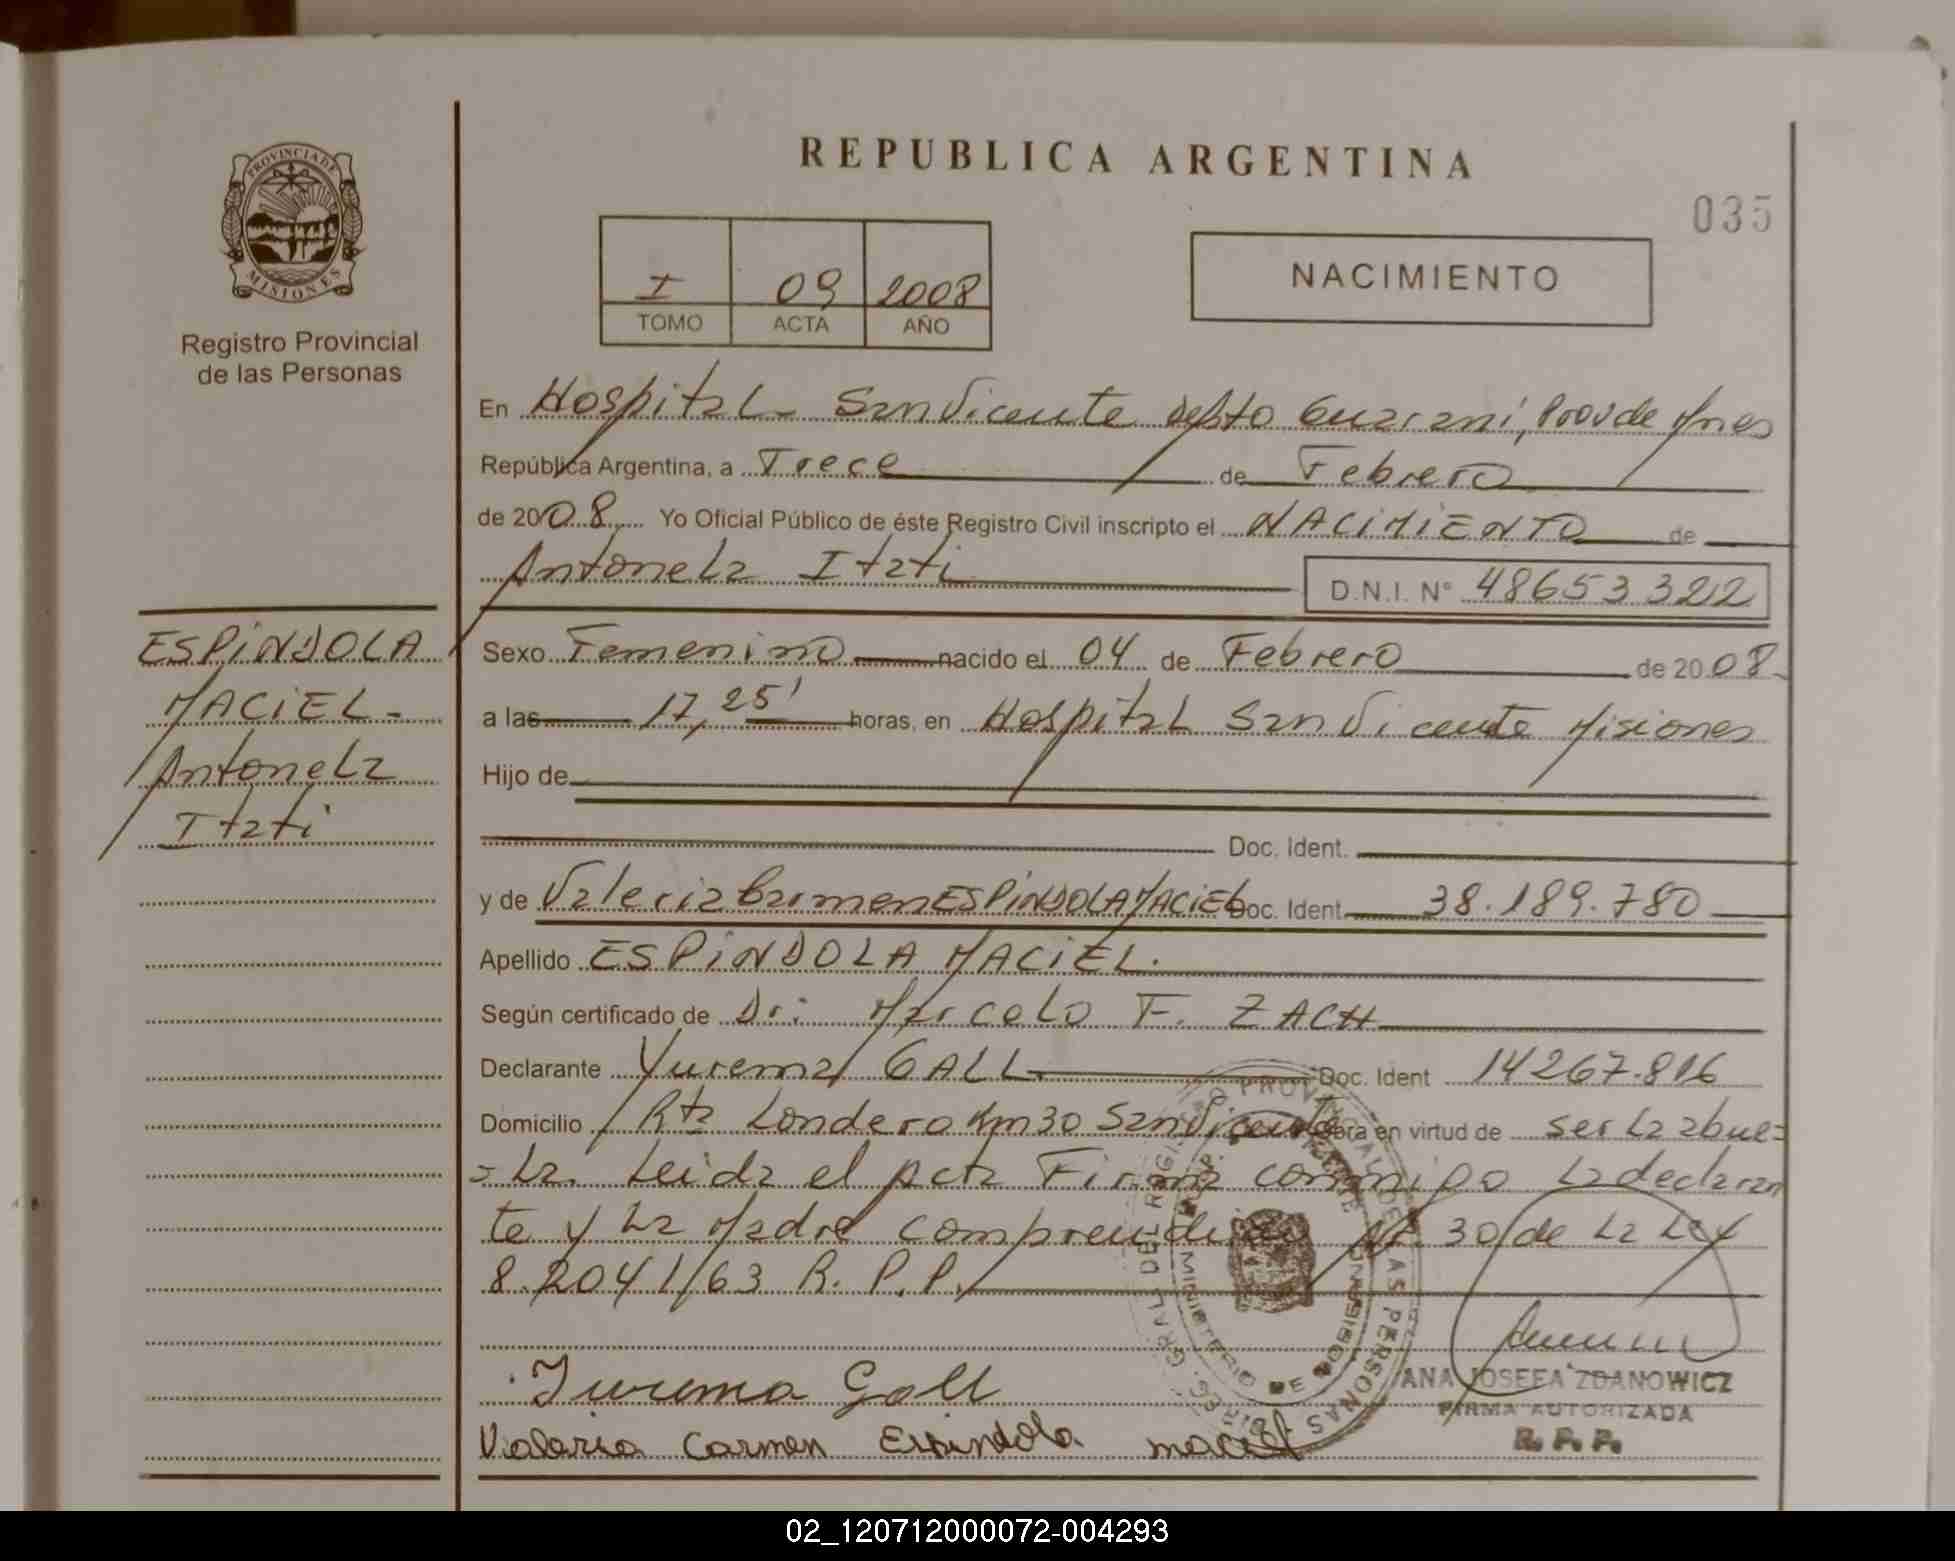 REPUBLICA ARGENTINA
035
PROVINCIA DE
MISIONES
Registro Provincial
de las Personas
I 09 2008
TOMO ACTA AÑO
NACIMIENTO
En Hospital San Vicente depto Guaraní, Prov de Mnes
República Argentina, a Trece de Febrero
de 2008 Yo Oficial Público de éste Registro Civil inscripto el NACIMIENTO de
Antonela Itati
D.N.I. N° 48653322
ESPINDOLA
MACIEL-
Antonela
Itati
Sexo Femenino nacido el 04 de Febrero de 2008-
a las 17,25' horas, en Hospital San Vicente Misiones
Hijo de
Doc. Ident.
y de Valeria Carmen ESPINDOLA MACIEL Doc. Ident. 38.189.780
Apellido ESPINDOLA MACIEL.
Según certificado de Dr: Marcelo F. ZACH
Declarante Yurema GALL Doc. Ident 14267.816
Domicilio Rta Londero Km 30 San Vicente Obra en virtud de ser la abue=
=la. Leida el acta Firma conmigo la declaran
te y la Madre 30 de la Ley
8.2041/63 R.P.P.
Jurema Goll
Valeria Carmen Espindola maciel
ANA JOSEFA ZDANOWICZ
FIRMA AUTORIZADA
R. P. P.
02_120712000072-004293